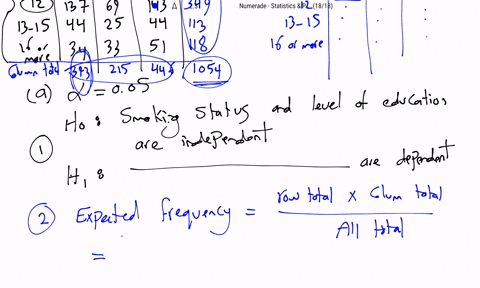 Numerade - Statistics & (18/18)
(12) 137 69 143 349
13-15 44 25 44 113
16 or more 34 33 51 118
Colum total 393 215 446 1054
12
13-15
16 or more
(a) α = 0.05
① H0: Smoking status and level of education are independent
H1: are dependent
② Expected frequency = row total x Colum total
All total
=